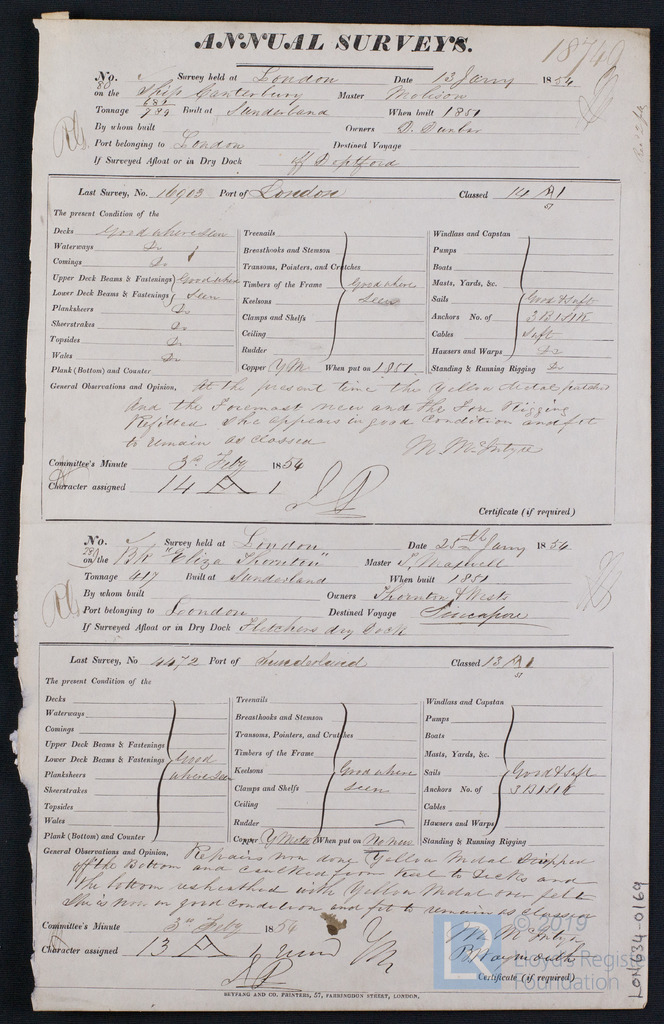 ANNUAL SURVEYS.
No. 80 Survey held at London Date 13 Jany 1854
on the Ship Canterbury Master Molison
Tonnage 789 Built at Sunderland When built 1851
By whom built Owners D. Dunbar
Port belonging to London Destined Voyage
If Surveyed Afloat or in Dry Dock off Deptford
Last Survey, No. 16903 Port of London Classed 14 A 1
51
The present Condition of the
Decks Good where seen
Waterways Do
Comings Do
Upper Deck Beams & Fastenings Good where
Lower Deck Beams & Fastenings seen
Planksheers Do
Sheerstrakes Do
Topsides Do
Wales Do
Plank (Bottom) and Counter
Treenails
Breasthooks and Stemson
Transoms, Pointers, and Crutches
Timbers of the Frame Good where
Keelsons seen
Clamps and Shelfs
Ceiling
Rudder
Copper YM When put on 1851
Windlass and Capstan
Pumps
Boats
Masts, Yards, &c.
Sails Good & suft
Anchors No. of 3 B 1 S 1 K
Cables Suft
Hawsers and Warps Do
Standing & Running Rigging Do
General Observations and Opinion, At the present time the Yellow Metal patched
and the Foremast new and the Fore Rigging
Refitted She appears in good Condition and fit
to remain as classed
M McIntyre
Committee's Minute 3d Feby 1854
Character assigned 14 A 1
Certificate (if required)
No. 781 Survey held at London Date 25th Jany 1854
on the Bk "Eliza Thornton" Master T. Maxwell
Tonnage 417 Built at Sunderland When built 1851
By whom built Owners Thornton & West
Port belonging to London Destined Voyage Sincapore
If Surveyed Afloat or in Dry Dock Fletchers dry Dock
Last Survey, No 4472 Port of Sunderland Classed 13 A 1
51
The present Condition of the
Decks
Waterways
Comings
Upper Deck Beams & Fastenings
Lower Deck Beams & Fastenings Good
Planksheers where seen
Sheerstrakes
Topsides
Wales
Plank (Bottom) and Counter
Treenails
Breasthooks and Stemson
Transoms, Pointers, and Crutches
Timbers of the Frame
Keelsons Good where
Clamps and Shelfs seen
Ceiling
Rudder
Copper Y Metal When put on Now new
Windlass and Capstan
Pumps
Boats
Masts, Yards, &c.
Sails Good & suft
Anchors No. of 3 B 1 S 1 K
Cables
Hawsers and Warps
Standing & Running Rigging
General Observations and Opinion, Repairs now done Yellow Metal stripped
off the Bottom and caulked from keel to Decks and
the bottom resheathed with Yellow Metal over felt
She is now in good condition and fit to remain as classed
M McIntyre
B Waymouth
Committee's Minute 3d Feby 1854
Character assigned 13 A 1 YM
Certificate (if required)
SEYFANG AND CO. PRINTERS, 57, FARRINGDON STREET, LONDON.
LON634-0169
© 2019
Lloyd's Register
Foundation
LR